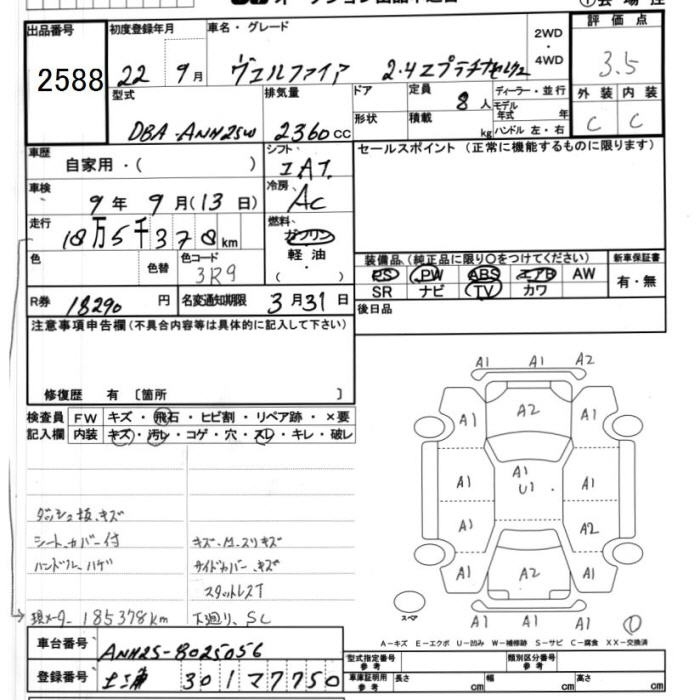 出品番号
2588
初度登録年月
22 9月
車名・グレード
ヴェルファイア 2.4Zプラチナセレクション
2WD
4WD
評価点
3.5
外装 内装
C C
型式
DBA-ANH25W
排気量
2360cc
ドア
形状
定員
8人
積載
kg
ディーラー・並行
モデル年式 年
ハンドル 左・右
車歴
自家用・( )
シフト
IAT
セールスポイント (正常に機能するものに限ります)
車検
9年9月(13日)
冷房
AC
走行
18万5千378km
燃料
ガソリン
軽油
( ・ )
色
色替
色コード
3R9
装備品 (純正品に限り○をつけてください)
PS PW ABS エアB AW
SR ナビ TV カワ
新車保証書
有・無
R券 18290円
名変通知期限 3月31日
後日品
注意事項申告欄(不具合内容等は具体的に記入して下さい)
修復歴 有 〔箇所 〕
検査員 FW キズ・飛石・ヒビ割・リペア跡・×要
記入欄 内装 キズ・汚レ・コゲ・穴・スレ・キレ・破レ
ダッシュ板、キズ
シートカバー付
ハンドル、ハゲ
現メーター 185378km
キズ、M、スリキズ
サイドカバー、キズ
スタットレスT
下廻り、SC
A1 A1 A2
A1 A2 A1
A1 A1 A1
U1
A1 A2
A1 A2 A1
A1 A1 A1
スペア
A-キズ E-エクボ U-凹み W-補修跡 S-サビ C-腐食 XX-交換済
車台番号
ANH25-8025056
登録番号
土浦 301マ7750
型式指定番号
参考
類別区分番号
参考
車庫証明用
参考
長さ cm
幅 cm
高さ cm